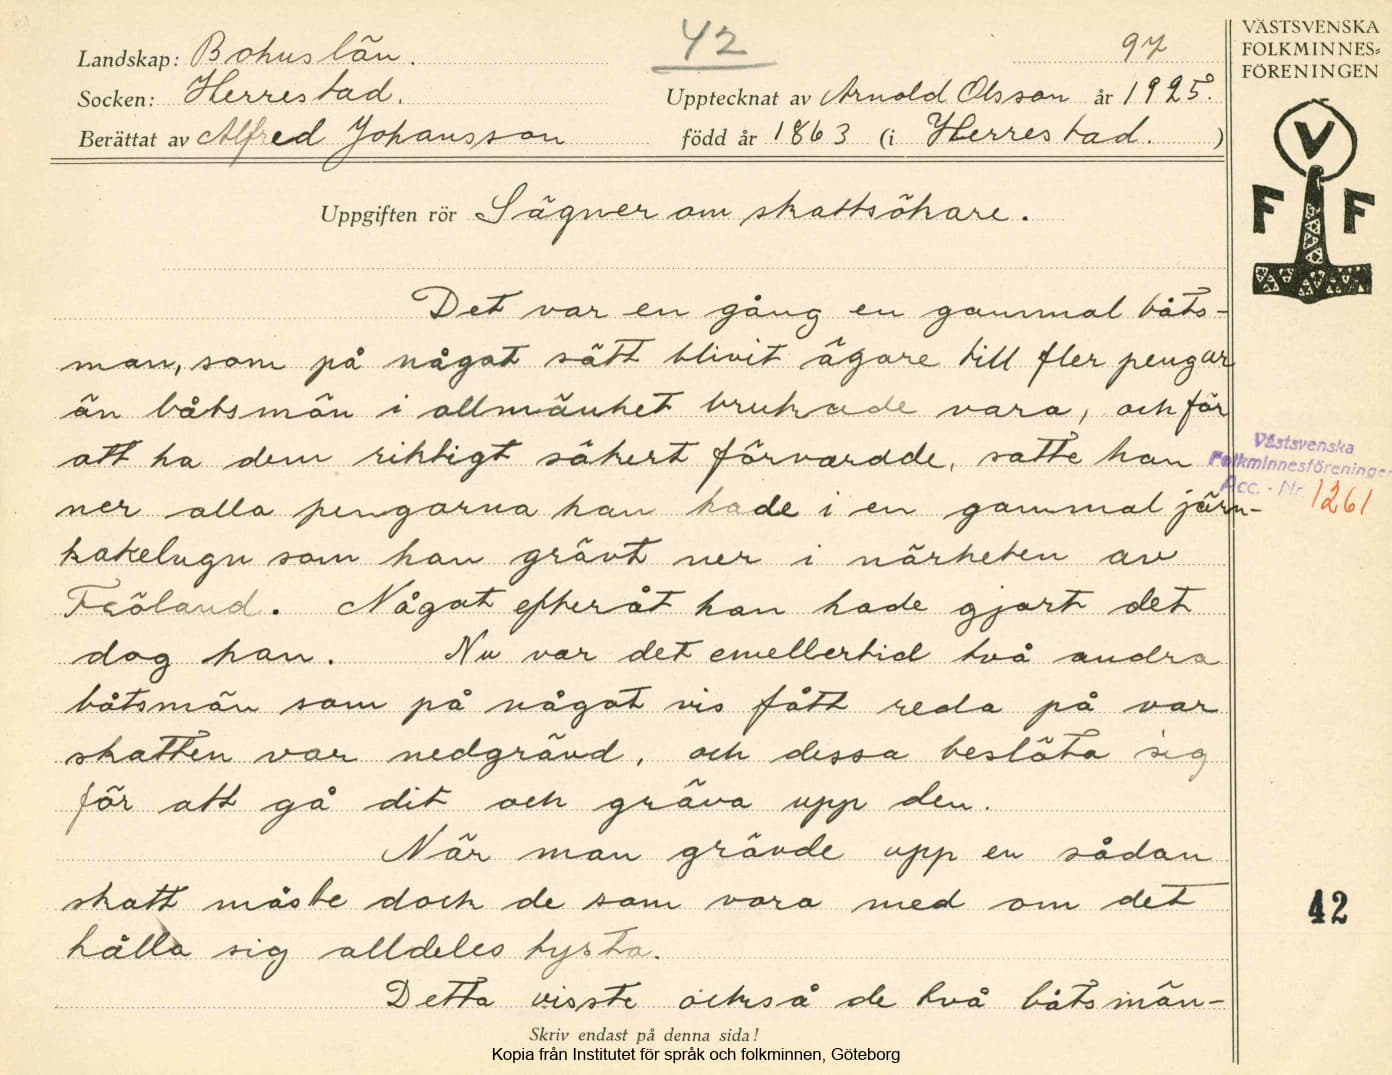 42
97
Landskap: Bohuslän.
Socken: Herrestad.
Upptecknat av Arnold Olsson år 1925.
Berättat av Alfred Johansson
född år 1863 (i Herrestad.)
Uppgiften rör Sägner om skattsökare.
Det var en gång en gammal båts-
man, som på något sätt blivit ägare till fler pengar
än båtsmän i allmänhet brukade vara, och för
att ha dem riktigt säkert förvarade, satte han
ner alla pengarna han hade i en gammal järn-
kakelugn som han grävt ner i närheten av
Fröland. Något efteråt han hade gjort det
dog han. Nu var det emellertid två andra
båtsmän som på något vis fått reda på var
skatten var nedgrävd, och dessa beslöto sig
för att gå dit och gräva upp den.
När man grävde upp en sådan
skatt måste dock de som voro med om det
hålla sig alldeles tysta.
Detta visste också de två båtsmän-
Skriv endast på denna sida!
Kopia från Institutet för språk och folkminnen, Göteborg
VÄSTSVENSKA
FOLKMINNES=
FÖRENINGEN
V
F F
Västsvenska
Folkminnesföreningen
Acc. - Nr 1261
42